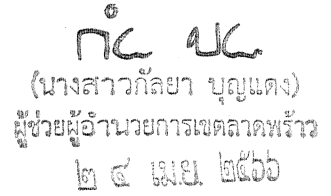 (นางสาวกัลยา บุญแดง)
ผู้ช่วยผู้อำนวยการเขตลาดพร้าว
๒ ๔ เม.ย. ๒๕๖๖